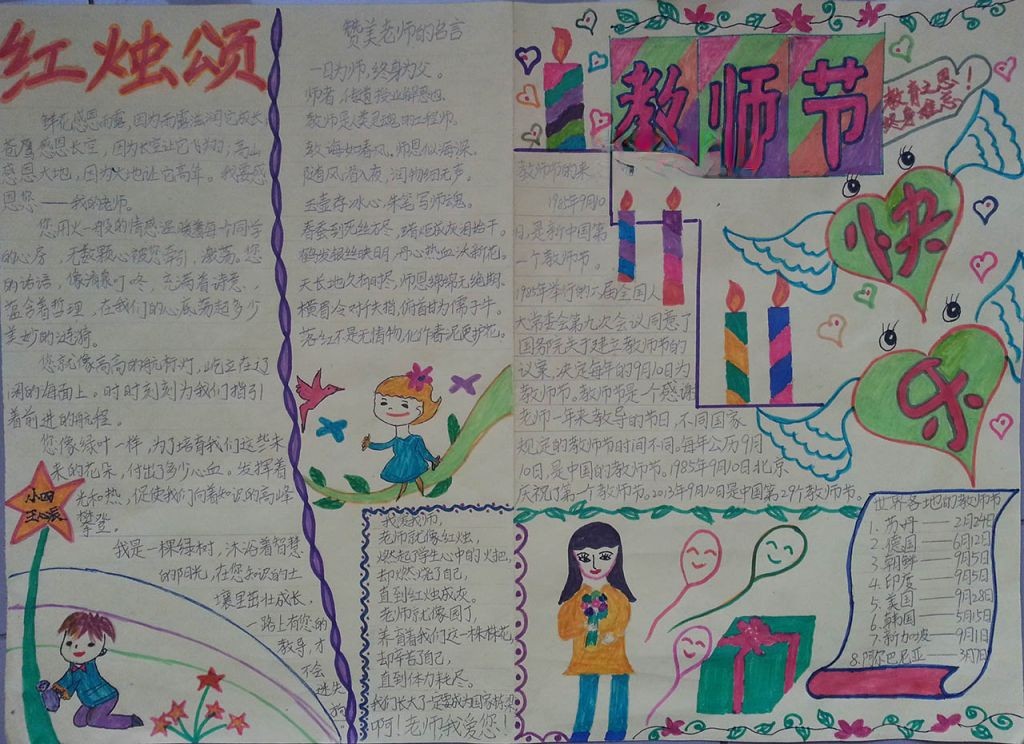 红烛颂
鲜花感恩雨露,因为雨露滋润它成长
苍鹰感恩长空,因为长空让它飞翔;高山
感恩大地,因为大地让它高耸。我要感
恩您——我的老师。
您用火一般的情感温暖着每一个同学
的心房,无数颗心被您牵引,激荡,您
的话语,像清泉叮咚,充满着诗意,
蕴含着哲理,在我们的心底荡起多少
美妙的涟漪。
您就像高高的航标灯,屹立在辽
阔的海面上。时时刻刻为我们指引
着前进的航程。
您像绿叶一样,为了培育我们这些未
来的花朵,付出了多少心血。发挥着
光和热,促使我们向着知识的高峰
攀登。
我是一棵绿树,沐浴着智慧
的阳光,在您知识的土
壤里茁壮成长,
一路上有您的
教导,才
不会
迷失
小四
赞美老师的名言
一日为师,终身为父。
师者,传道授业解惑也。
教师是人类灵魂的工程师。
教诲如春风,师恩似海深。
随风潜入夜,润物细无声。
玉壶存冰心,朱笔写师魂。
春蚕到死丝方尽,蜡炬成灰泪始干。
鹤发银丝映日月,丹心热血沃新花。
天长地久有时尽,师恩绵绵无绝期。
横眉冷对千夫指,俯首甘为孺子牛。
落红不是无情物,化作春泥更护花。
我爱教师,
老师就像红烛,
燃起了学生心中的火把,
却燃烧了自己,
直到红烛成灰。
老师就像园丁,
养育着我们这一棵棵花,
却辛苦了自己,
直到体力耗尽。
我们长大了一定要成为国家栋梁
啊!老师,我爱您!
教师节
教育之恩!
终身难忘
快
乐
教师节的来
1985年9月10
日,是新中国第
一个教师节。
1985年举行的六届全国人
大常委会第九次会议同意了
国务院关于建立教师节的
议案,决定每年的9月10日为
教师节。教师节是一个感谢
老师一年来教导的节日,不同国家
规定的教师节时间不同。每年公历9月
10日,是中国的教师节。1985年9月10日北京
庆祝了第一个教师节。2013年9月10日是中国第29个教师节。
世界各地的教师节
1.苏丹——2月24日
2.德国——6月12日
3.朝鲜——9月5日
4.印度——9月5日
5.美国——9月28日
6.韩国——5月15日
7.新加坡——9月1日
8.阿尔巴尼亚——3月7日